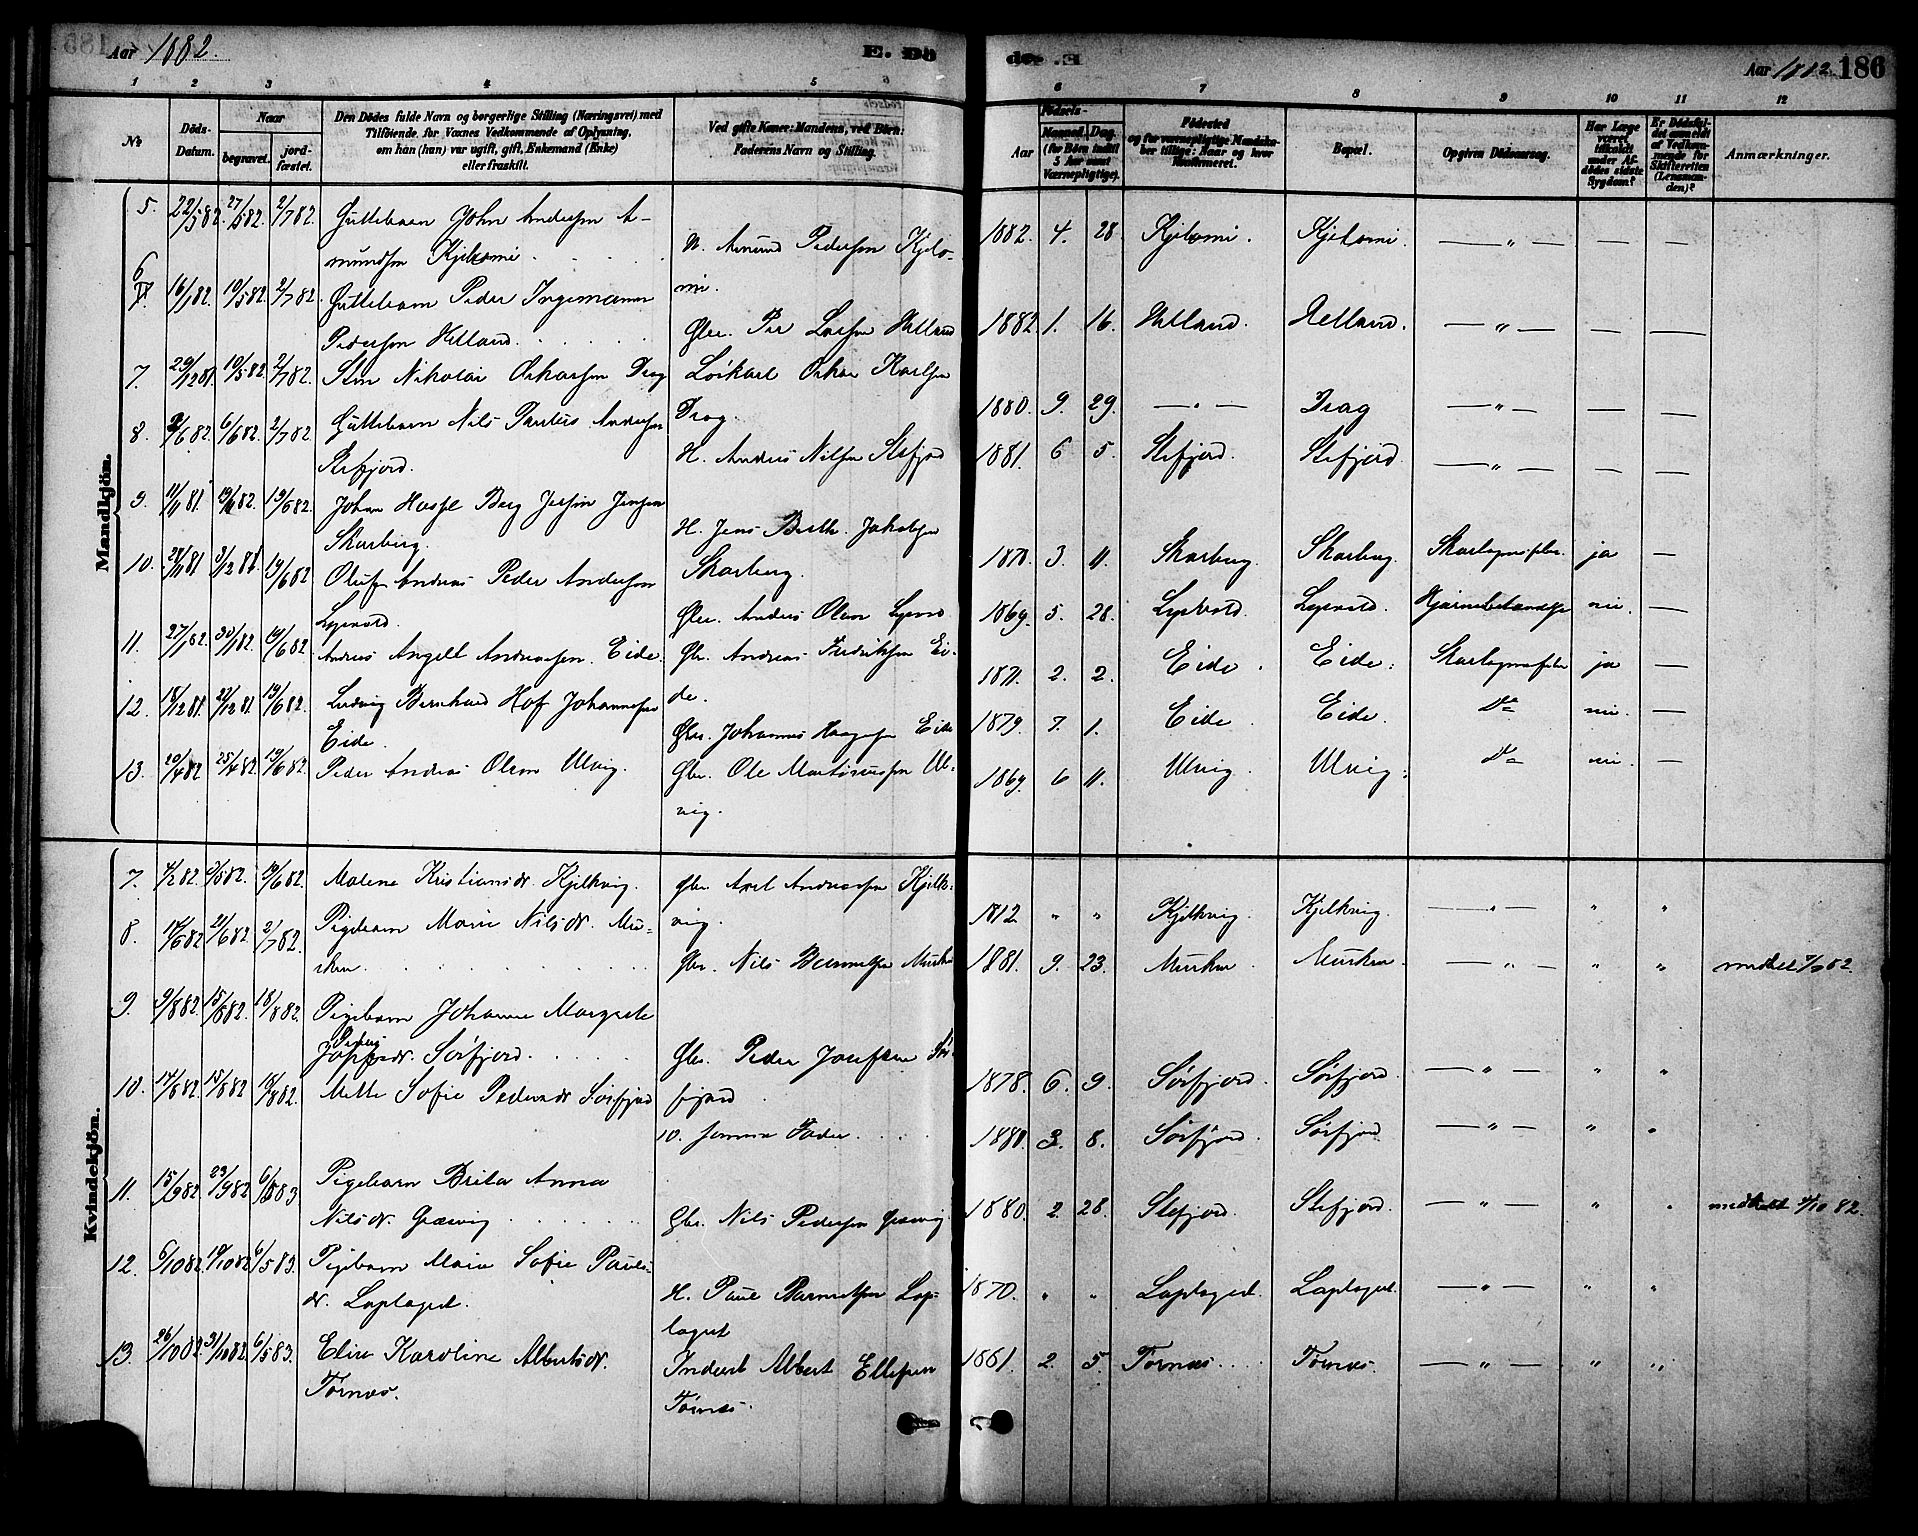 Aar 1882.
E. Dö
de. E.
Aar 1882. 186
1 2 3 4 5 6
6 7 8 9 10 11 12
No
Döds-
Datum.
Naar
begravet.
jord-
fæstet.
Den Dödes fulde Navn og borgerlige Stilling (Næringsvei) med
Tilföiende, for Voxnes Vedkommende af Oplysning,
om hun (han) var ugift, gift, Enkemand (Enke)
eller fraskilt.
Ved gifte Koner: Mandens, ved Börn:
Faderens Navn og Stilling.
Födsels-
Aar
Maaned. Dag.
(for Börn indtil
5 Aar samt
Værnepligtige).
Födested
og for værnepligtige Mandska-
ber tillige: Naar og hvor
konfirmeret.
Bopæl.
Opgiven Dödsaarsag.
Har Læge
været
tilkaldt
under Af-
dödes sidste
Sygdom?
Er Dödsfal-
det anmeldt
af Vedkom-
mende for
Skifteretten
(Lensman-
den)?
Anmærkninger.
Mandkjön.
5. 22/5 82. 27/5 82. 2/7 82. Guttebarn John Andersen A-
mundsen Kjelsmi
N. Amund Pedersen Kjels-
mi.
1882. 4. 28. Kjelsmi. Kjelsmi. — " — — —
6 16/1 82. 19/5 82. 2/7 82. Guttebarn Peder Ingemann
Pedersen Helland.
Gbr. Per Larsen Helland
1882 1. 16. Helland. Helland. — " — — —
7. 29/12 81. 19/5 82. 2/7 82. Sten Nikolai Oskarsen Drag
Löskarl Oskar Karlsen
Drag.
1880. 9. 29. — " — Drag — " — — —
8. 2/6 82. 6/6 82. 2/7 82. Guttebarn Nils Paulus Andersen
Stefjord.
H. Anders Nilsen Stefjord
1881. 6 5. Stefjord. Stefjord — " — — —
9. 11/11 81. 19/6 82. Johan Berg Jensen
Skarberg.
H. Jens Berth. Jakobsen
Skarberg.
1878. 3. 11. Skarberg. Skarberg. Skarlagensfeber ja —
10. 28/11 81 3/12 81. 19/6 82 Oluf Andreas Peder Andersen
Lysvold.
Gbr. Anders Olsen
1869. 5. 28. Lysvold. Lysvold. Hjernebetændelse nei. —
11. 27/1 82. 30/1 82. 19/6 82. Andreas Angell Andreassen Eide.
Gbr. Andreas Fredriksen Ei-
de.
1871. 2. 2. Eide. Eide. Skarlagensfeber ja —
12. 18/12 81. 22/12 81. 19/6 82. Ludvig Bernhard Hof Johannesen
Eide.
Gbr. Johannes Eide
1879. 7. 1. Eide. Eide. Do nei. —
13. 20/4 82 25/4 82. 19/6 82. Peder Andreas Olsen Ulvig.
Gbr. Ole Martinussen Ul-
vig.
1869. 6 11. Ulvig. Ulvig. Do nei. —
Kvindekjön.
7. 4/2 82. 3/5 82. 19/6 82. Malene Kristiansdr. Kjelkvig.
Gbr. Axel Andreassen Kjelk-
vig.
1812 " " Kjelkvig. Kjelkvig. — " — " "
8. 14/6 82 21/6 82. 2/7 82. Pigebarn Marie Nilsdr. Mu-
sken.
Gbr. Nils Musken
1881. 9. 23. Musken. Musken. — " — " " meldt 82.
9. 9/8 82. 15/8 82. 18/8 82. Pigebarn Johanne Margrete
Sörfjord.
Gbr. Peder Josefsen Sör-
fjord.
1878. 6. 9. Sörfjord. Sörfjord. — " — " "
10. 14/8 82. 15/8 82 18/8 82. Mette Sofie Pedersdr Sörfjord
10. Samme Fader.
1880. 3. 8. Sörfjord. Sörfjord — " — " "
11. 15/9 82. 23/9 82. 6/5 83. Pigebarn Brita Anna
Nilsdr. Græsvig
Gbr. Nils Pedersen Græsvig
1880. 2. 28. Stefjord. Stefjord. — " — " " meldt 4/10 82.
12. 6/10 82. 19/10 82 6/5 83. Pigebarn Maria Sofie Pauls-
dr. Laplaged.
H. Paul Lap-
laget
1870. " " Laplaged. Laplaged. — " — " "
13. 26/10 82. 31/10 82. 6/5 83. Elise Karoline Albertsdr.
Törnes.
Inderst Albert Ellefsen
Törnes.
1861. 2. 5. Tornes Tornes. — " — " "